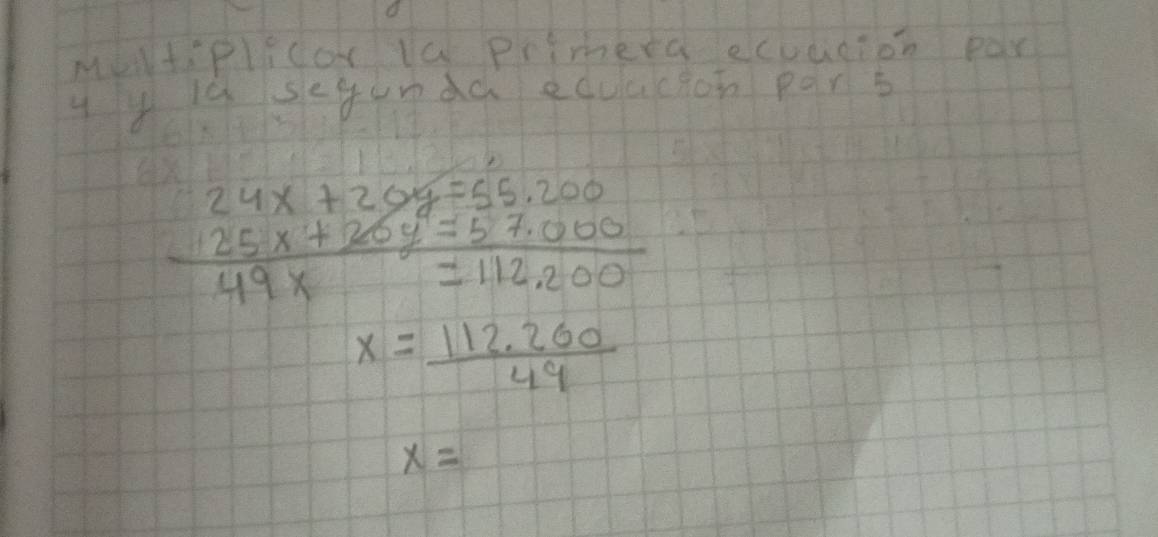 Multiplicar la primera ecuación por
4 y la segunda ecuación por 5
24x + 20y = 55.200
25x + 20y = 57.000
49x = 112.200
x = 112.200
49
x =